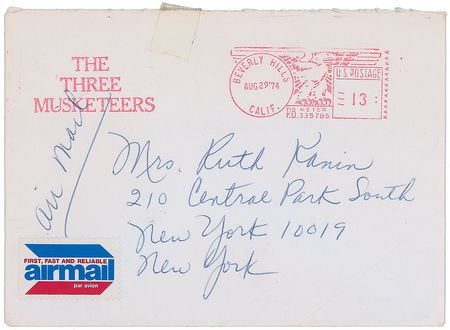 THE
THREE
MUSKETEERS
BEVERLY HILLS
AUG 29 '74
CALIF.
U.S. POSTAGE
13
P.B. METER
335785
air mail
Mrs. Ruth Kanin
210 Central Park South
New York 10019
New York
FIRST, FAST AND RELIABLE
airmail
par avion